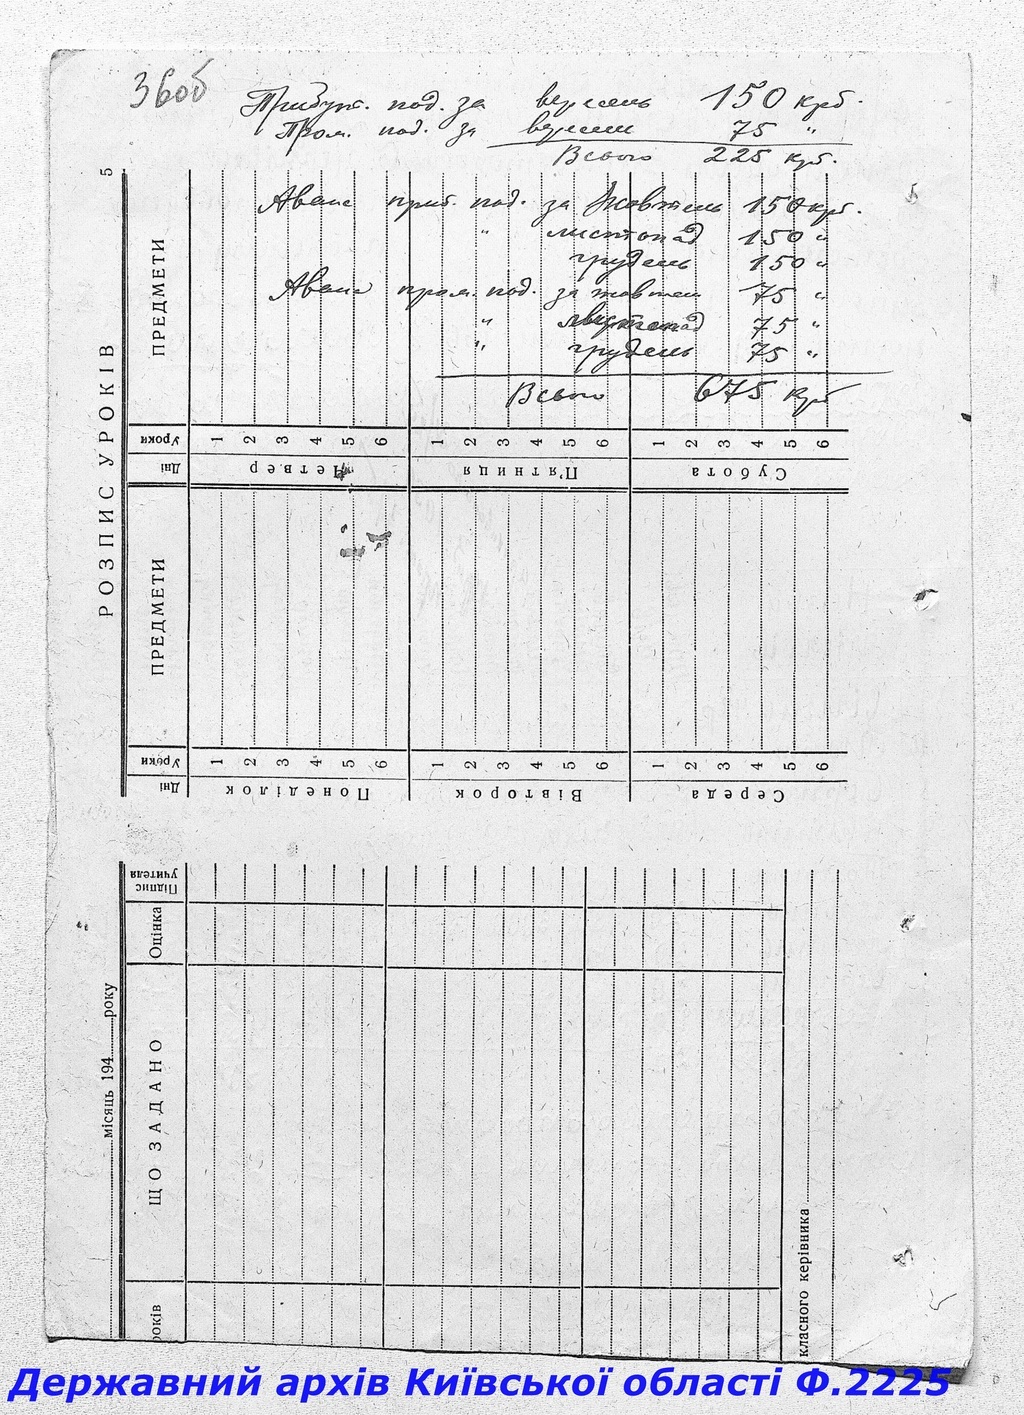 36об
Прибут. под. за вересень 150 крб.
Пром. под. за вересень 75 "
Всього 225 крб.
5
Аванс приб. под. за жовтень 150 крб.
" листопад 150 "
грудень 150 "
Аванс пром. под. за жовтень 75 "
" листопад 75 "
" грудень 75 "
Всього 675 крб
РОЗПИС УРОКІВ
ПРЕДМЕТИ
Уроки 1 2 3 4 5 6 1 2 3 4 5 6 1 2 3 4 5 6
Дні Четвер П'ятниця Субота
ПРЕДМЕТИ
Уроки 1 2 3 4 5 6 1 2 3 4 5 6 1 2 3 4 5 6
Дні Понеділок Вівторок Середа
Підпис
учителя
Оцінка
ЩО ЗАДАНО
років
місяць 194 року
класного керівника
Державний архів Київської області Ф.2225